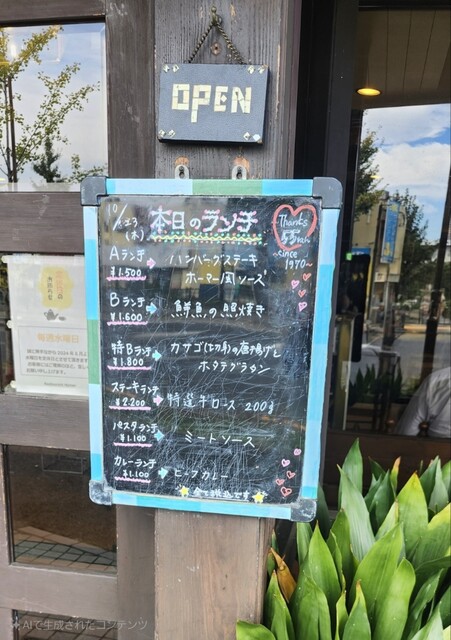 OPEN
10/23
(木)
本日のランチ
Thanks
55th
~since
1970~
Aランチ
¥1.500
ハンバーグステーキ
Bランチ
¥1.600
鮮魚の照焼き
特Bランチ
¥1.800
ホタテグラタン
ステーキランチ
¥2.200
特選牛ロース 200g
パスタランチ
¥1.100
ミートソース
カレーランチ
¥1.100
ビーフカレー
全て税込です
毎週水曜日
AIで生成されたコンテンツ